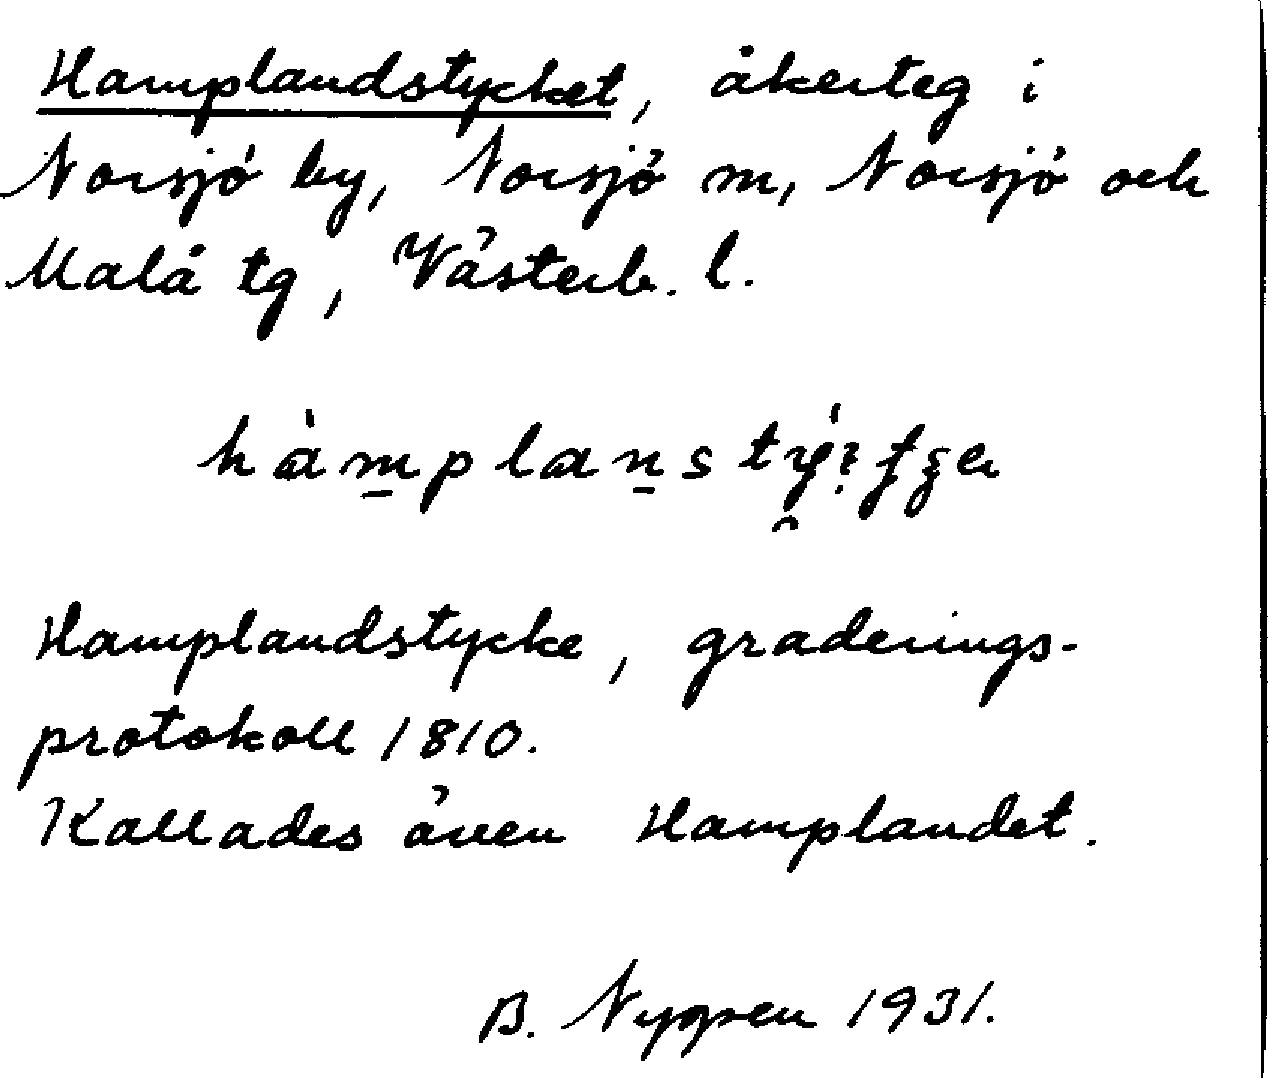 Hamplandstycket, åkerteg i
Norsjö by, Norsjö m, Norsjö och
Malå tg, Västerb. l.
Hamplandstycke, graderings-
protokoll 1810.
Kallades även Hamplandet.
B. Nygren 1931.